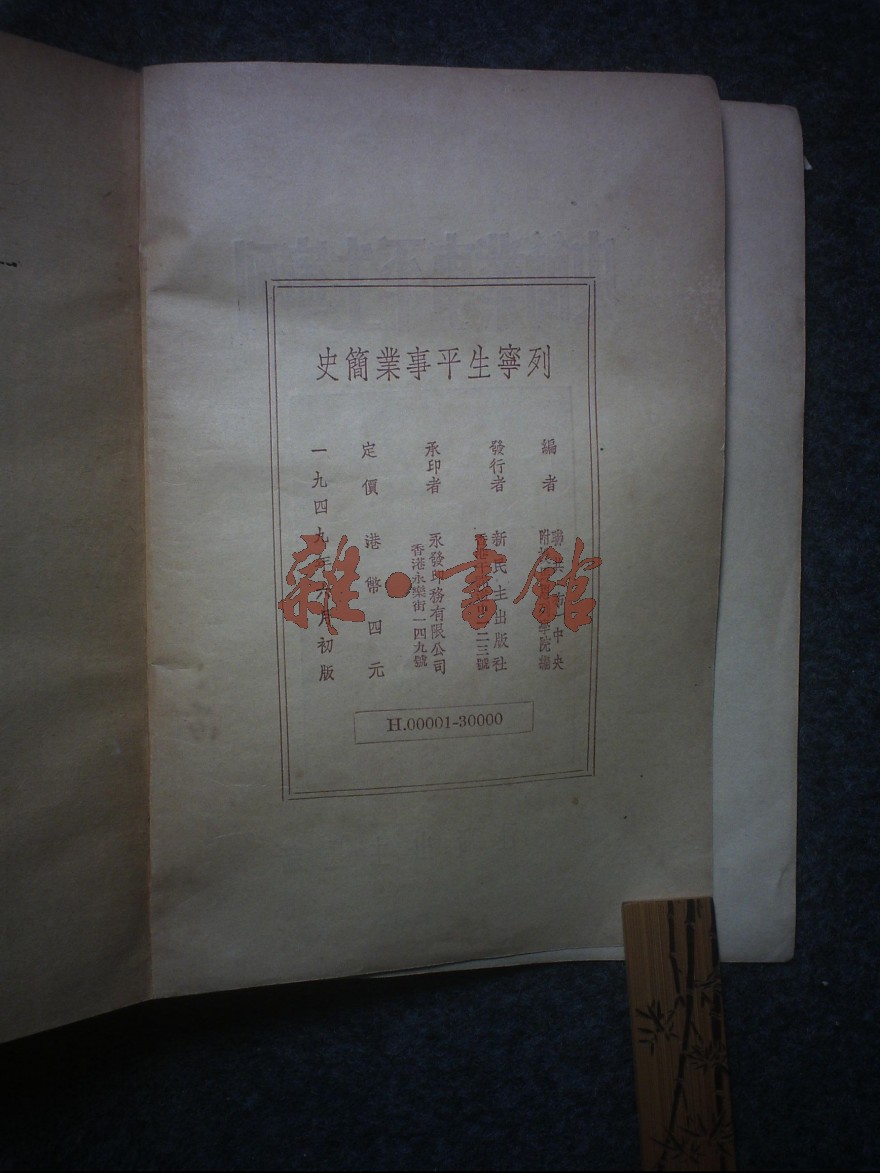 列寧生平事業簡史
編者
聯共 中央
附 學院編
發行者
新民主出版社
香港 二三號
承印者
永發印務有限公司
香港永樂街一四九號
定價 港幣四元
一九四九年 月初版
H.00001-30000
雜·書館